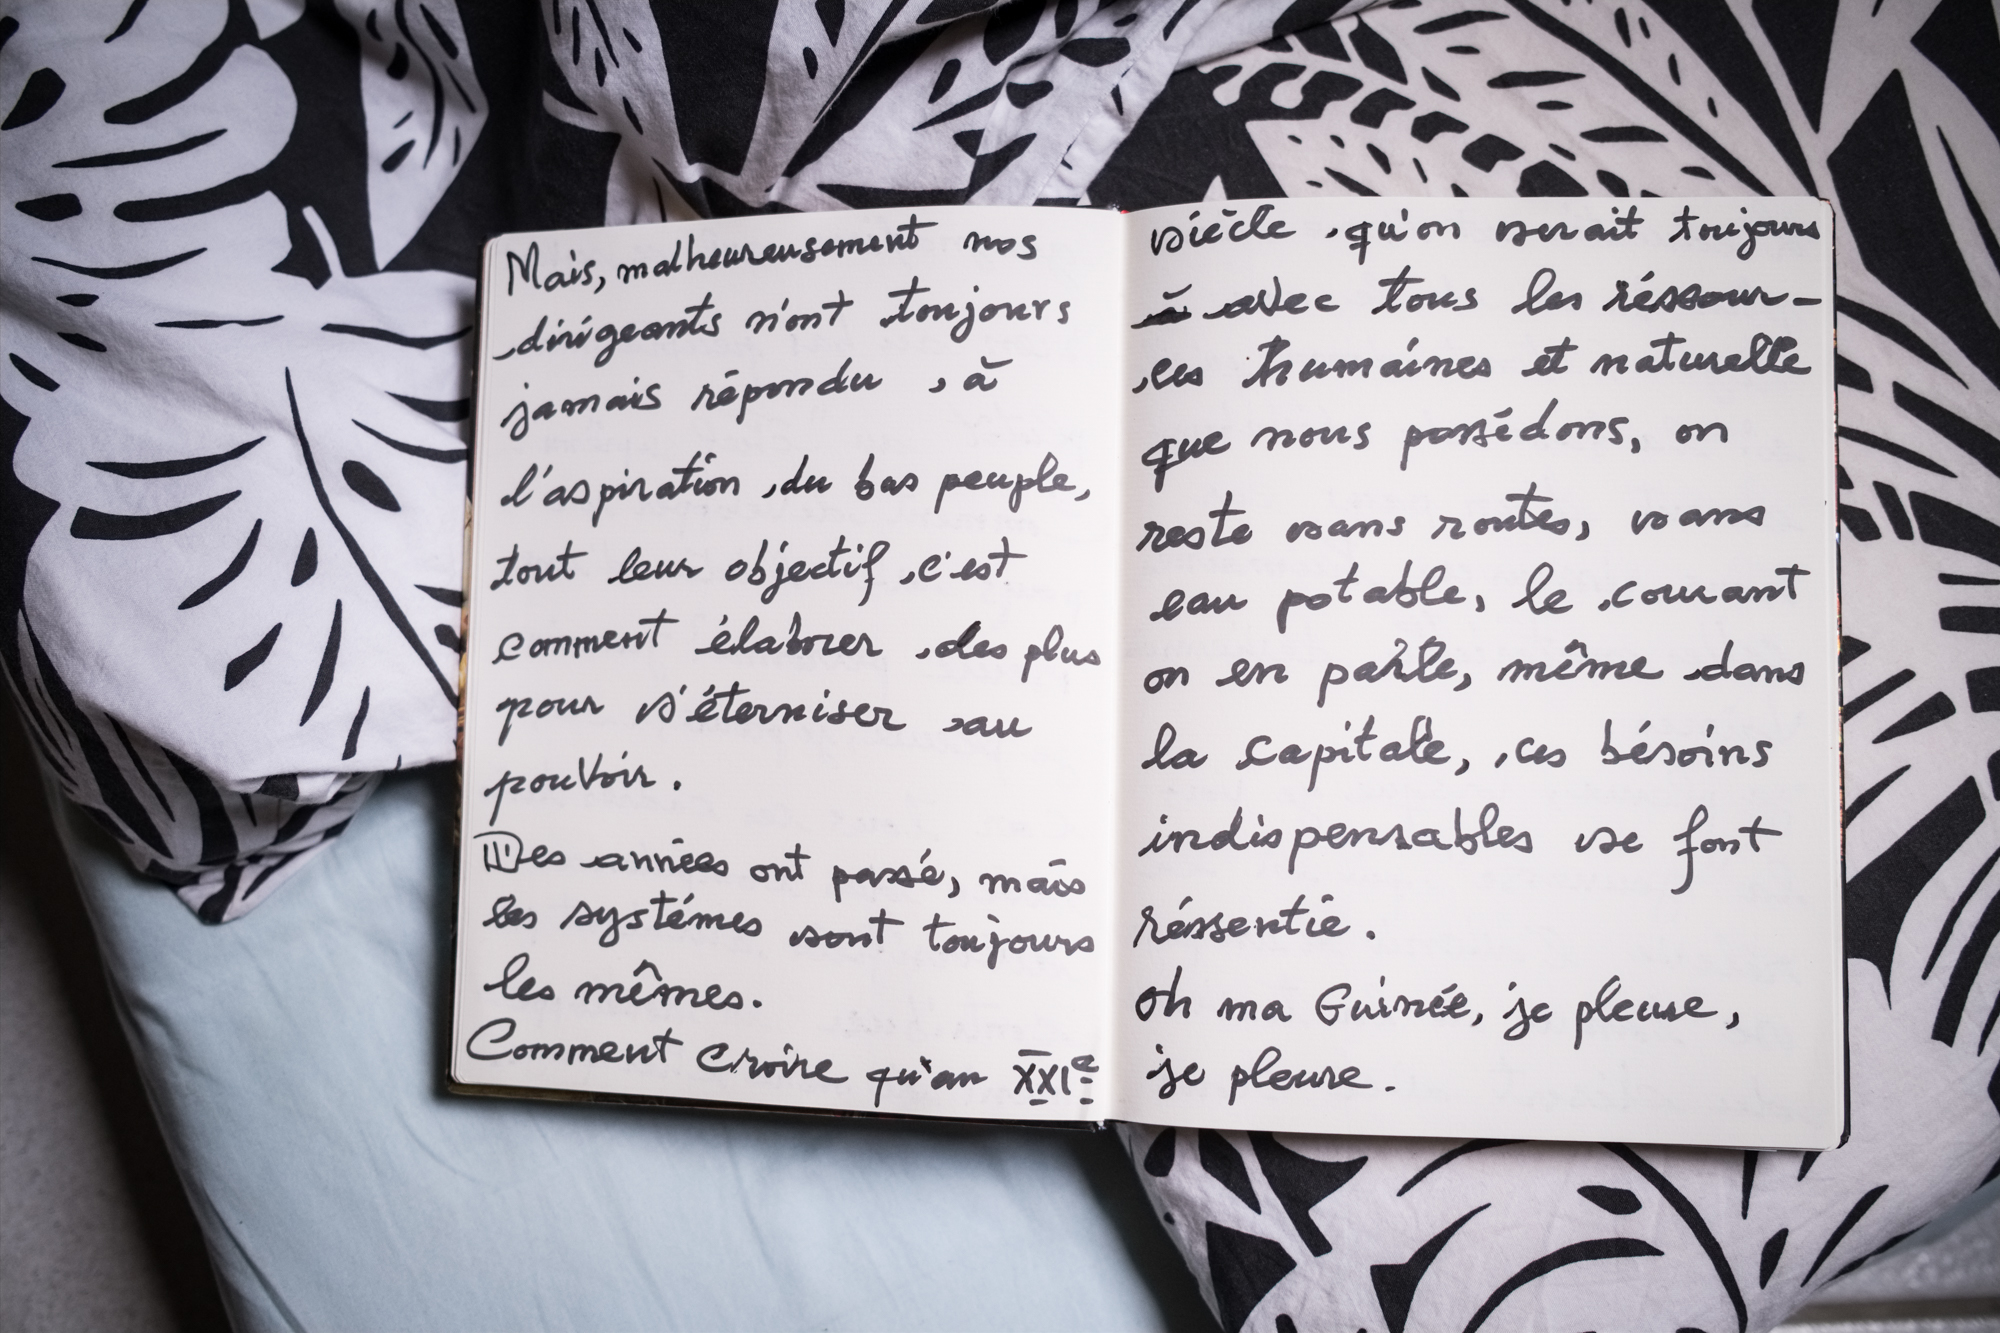 Mais, malheureusement nos
dirigeants n'ont toujours
jamais répondu, à
l'aspiration du bas peuple,
tout leur objectif c'est
comment élaborer des plus
pour s'éterniser au
pouvoir.
Des années ont passé, mais
les systémes sont toujours
les mêmes.
Comment croire qu'au XXIe
siècle qu'on serait toujours
à avec tous les réssour-
ces humaines et naturelle
que nous possédons, on
reste sans routes, sans
eau potable, le courant
on en parle, même dans
la capitale, ces bésoins
indispensables se font
réssentie.
Oh ma Guinée, je pleure,
je pleure.